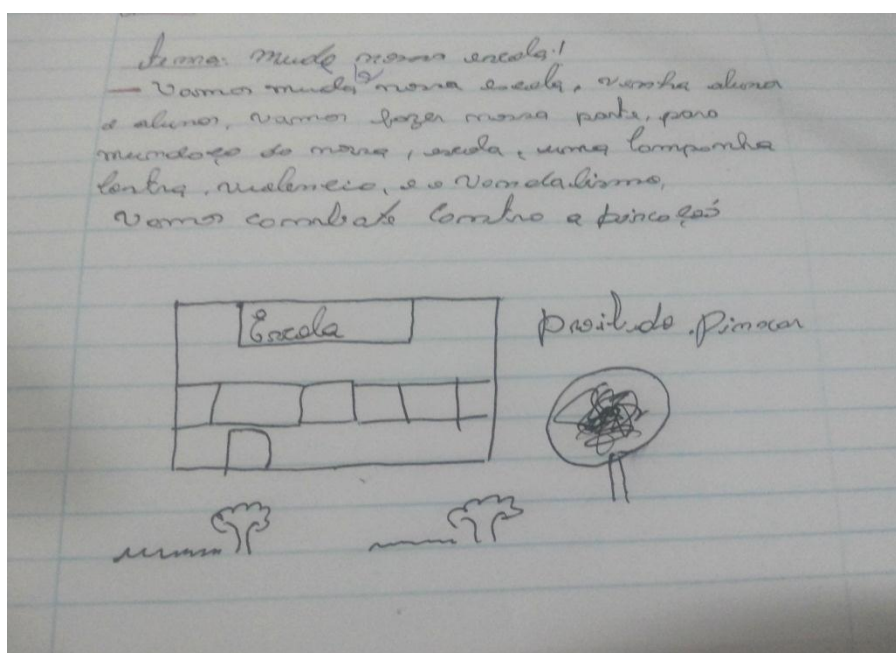 tema: mude nossa escola!
— Vamos muda nossa escola, venha aluna
e aluno, vamos fazer nossa parte, para
mundaço do nossa, escola, uma Companha
Contra, violencia, e o Vandalismo,
Vamos combate Contra a
Escola
Proibido